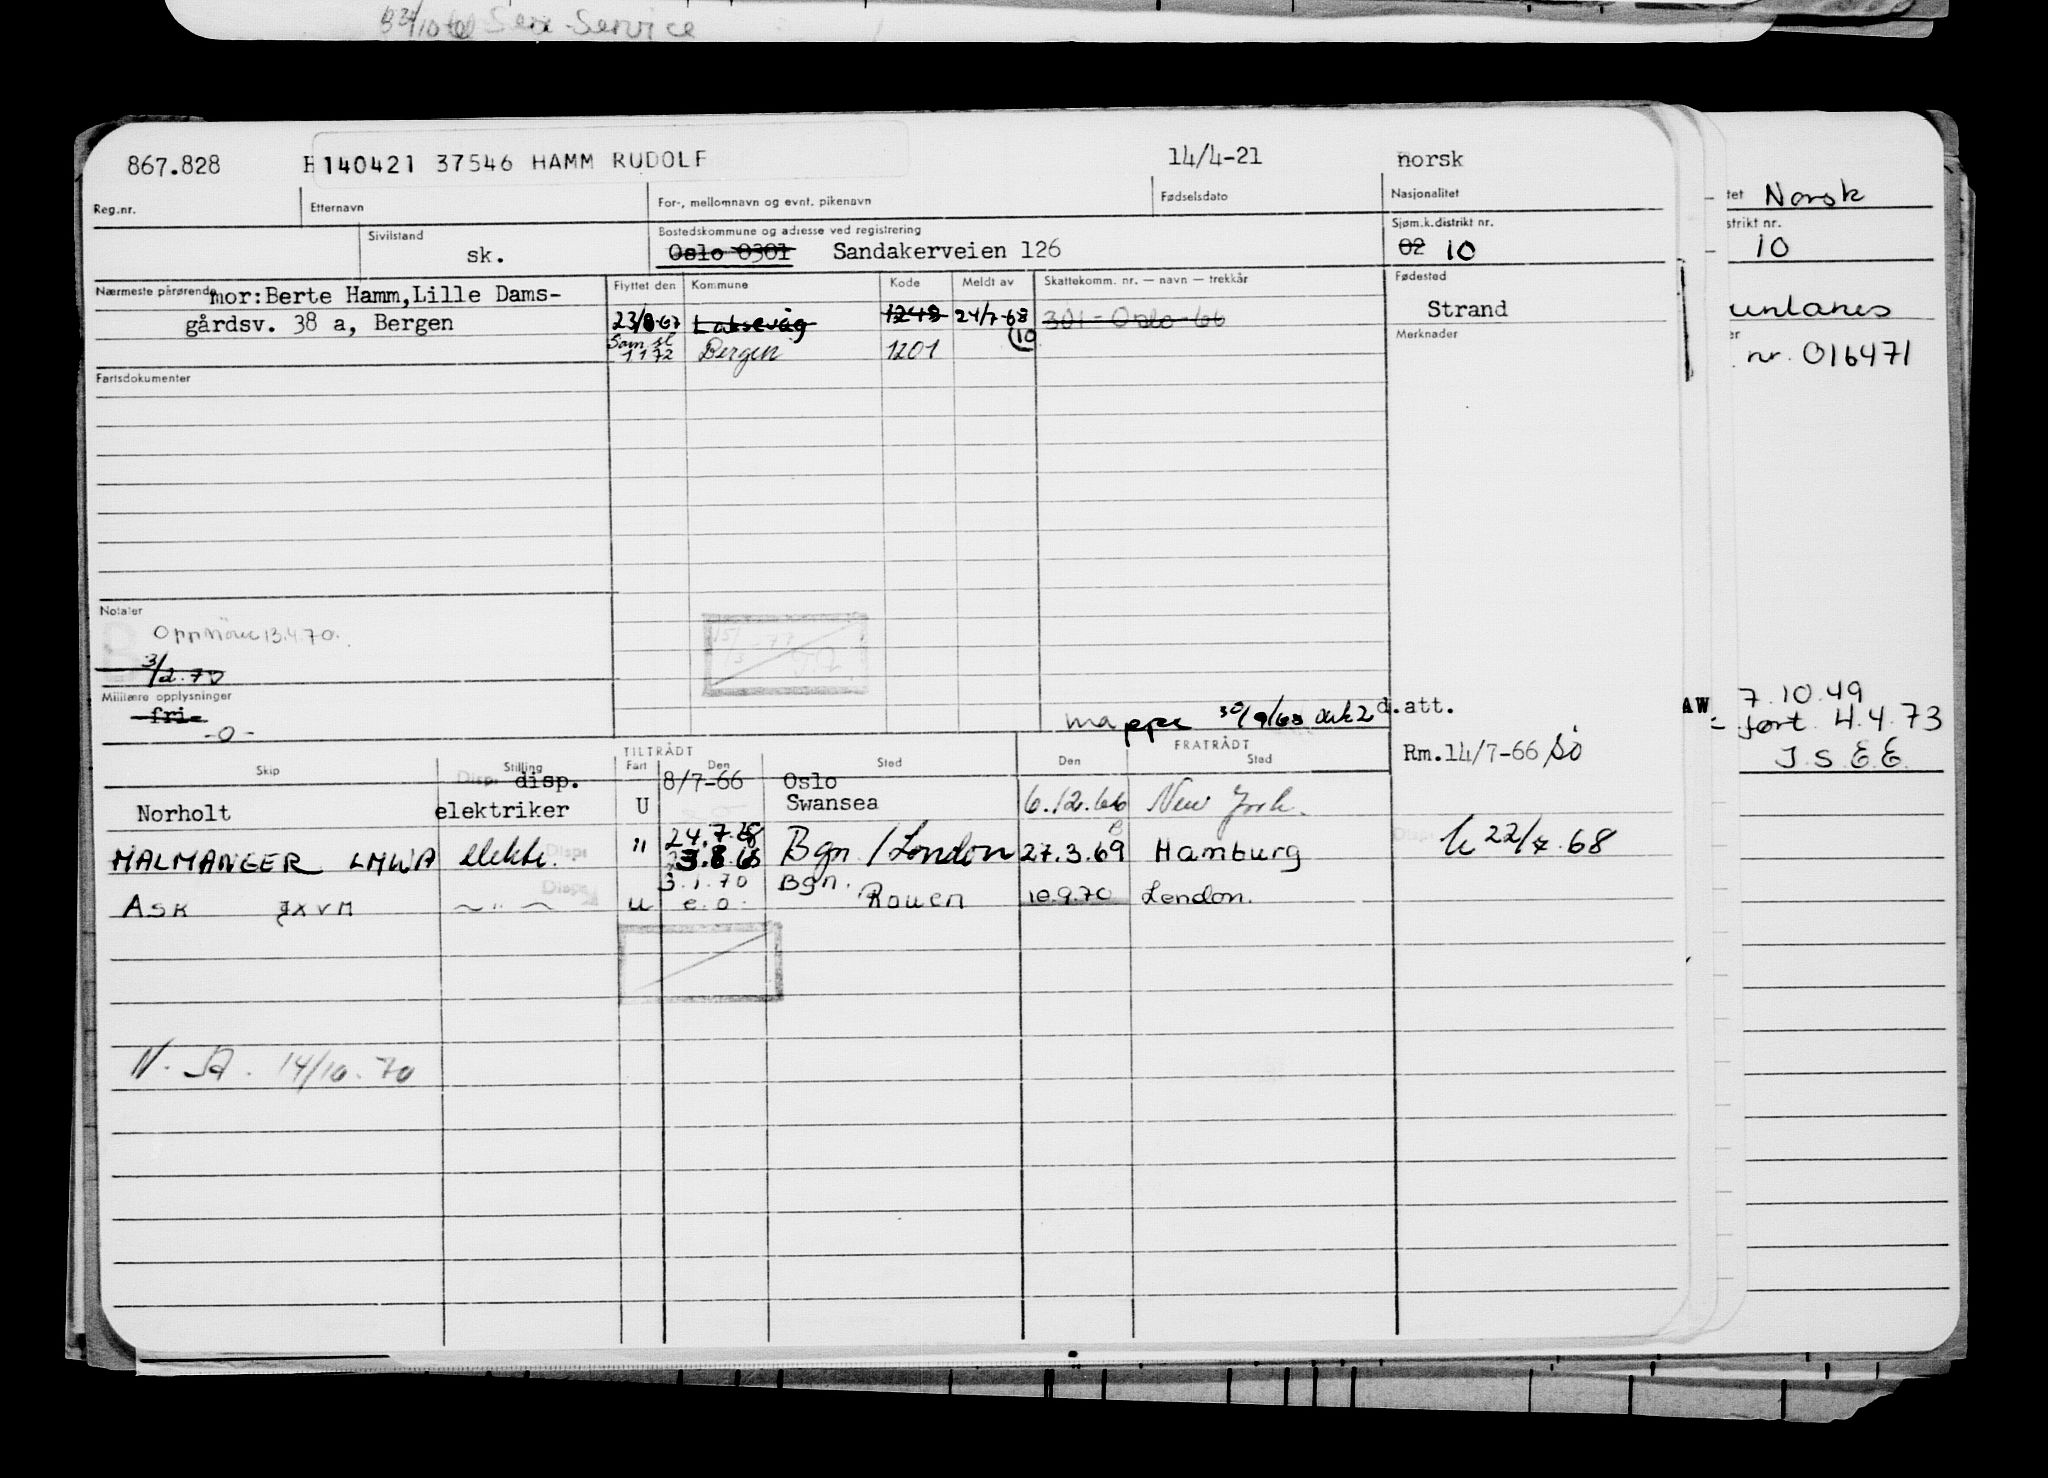 Service
867.828 H140421 37546 HAMM RUDOLF 14/4-21 norsk
Reg.nr. Etternavn For-, mellomnavn og evnt. pikenavn Fødselsdato Nasjonalitet
Sivilstand Bostedskommune og adresse ved registrering Sjøm.k.distrikt nr.
sk. Oslo 0301 Sandakerveien 126 02 10
Nærmeste pårørende Flyttet den Kommune Kode Meldt av Skattekomm. nr. — navn — trekkår Fødested
mor:Berte Hamm,Lille Dams- 23/8-67 Laksevåg 1248 24/7-68 301-Oslo-66 Strand
gårdsv. 38 a, Bergen (10 Merknader
Sam st
1 1 72 Bergen 1201
Fartsdokumenter
Notater
13.4.70.
3/2.70
Militære opplysninger
-fri-
-0-
30/9/68 d.att.
TILTRÅDT FRATRÅDT
Skip Stilling Fart Den Sted Den Sted Rm.14/7-66 sö
disp. 8/7-66 Oslo
Norholt elektriker U Swansea 6.12.66 New York.
24.7.68
MALMANGER LMWA elektr. " 3.8.68 Bgn /London 27.3.69 Hamburg 22/7.68
3.1.70 Bgn.
ASK JXVM ~ " ~ u e.o. Rouen 10.9.70 London.
N. SA. 14/10.70
tet Norsk
strikt nr.
10
nr. 016471
AW 7.10.49
ført 4.4.73
J.S.E.E.